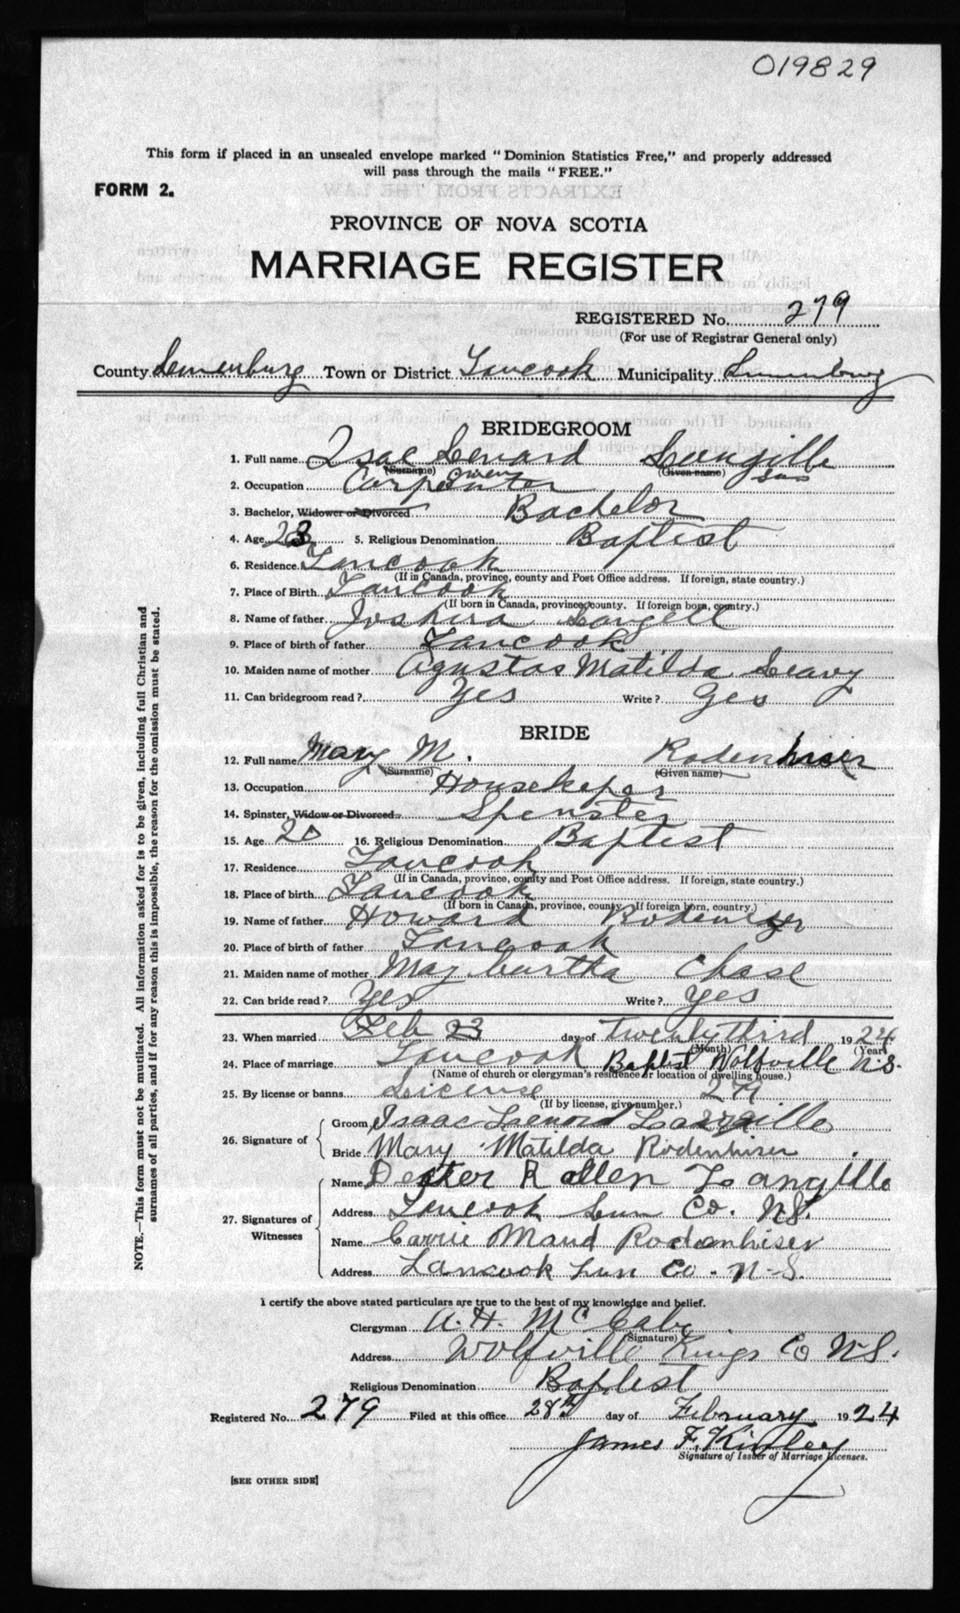 019829
This form if placed in an unsealed envelope marked "Dominion Statistics Free," and properly addressed
will pass through the mails "FREE."
FORM 2.
PROVINCE OF NOVA SCOTIA
MARRIAGE REGISTER
REGISTERED No. 279
(For use of Registrar General only)
County Lunenburg Town or District Tancook Municipality Lunenburg
BRIDEGROOM
1. Full name Isac Lenard Langille
(Surname) (Given name)
2. Occupation Carpenter
3. Bachelor, Widower or Divorced Bachelor
4. Age 23 5. Religious Denomination Baptist
6. Residence Tancook
(If in Canada, province, county and Post Office address. If foreign, state country.)
7. Place of Birth Tancook
(If born in Canada, province, county. If foreign born, country.)
8. Name of father Joshua Langell
9. Place of birth of father Tancook
10. Maiden name of mother Agustas Matilda Leavy
11. Can bridegroom read? Yes Write? Yes
BRIDE
12. Full name Mary M. Rodenhiser
(Surname) (Given name)
13. Occupation Housekeper
14. Spinster, Widow or Divorced Spenster
15. Age 20 16. Religious Denomination Baptist
17. Residence Tancook
(If in Canada, province, county and Post Office address. If foreign, state country.)
18. Place of birth Tancook
(If born in Canada, province, county. If foreign born, country.)
19. Name of father Howard Rodeniser
20. Place of birth of father Tancook
21. Maiden name of mother May Burtha Chase
22. Can bride read? Yes Write? Yes
23. When married Feb 23 day of Twenty third 1924
(Month) (Year)
24. Place of marriage Tancook Baptist Wolfville N.S.
(Name of church or clergyman's residence or location of dwelling house.)
25. By license or banns License 279
(If by license, give number.)
26. Signature of
Groom Isaac Lenord Langille
Bride Mary Matilda Rodenhiser
27. Signatures of Witnesses
Name Dexter R allen Langille
Address Tancook Lun Co. N.S.
Name Carrie Maud Rodenhiser
Address Tancook Lun Co. N-S.
I certify the above stated particulars are true to the best of my knowledge and belief.
Clergyman A. H. McCabe
(Signature)
Address Wolfville Kings Co N.S.
Religious Denomination Baptist
Registered No. 279 Filed at this office 28th day of February 1924
James F. Kinley
Signature of Issuer of Marriage Licenses.
[SEE OTHER SIDE]
NOTE.—This form must not be mutilated. All information asked for is to be given, including full Christian and
surnames of all parties, and if for any reason this is impossible, the reason for the omission must be stated.